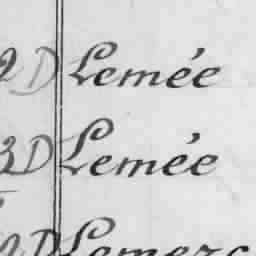 2 D Lemée
3 D Lemée
2 D Lemerc